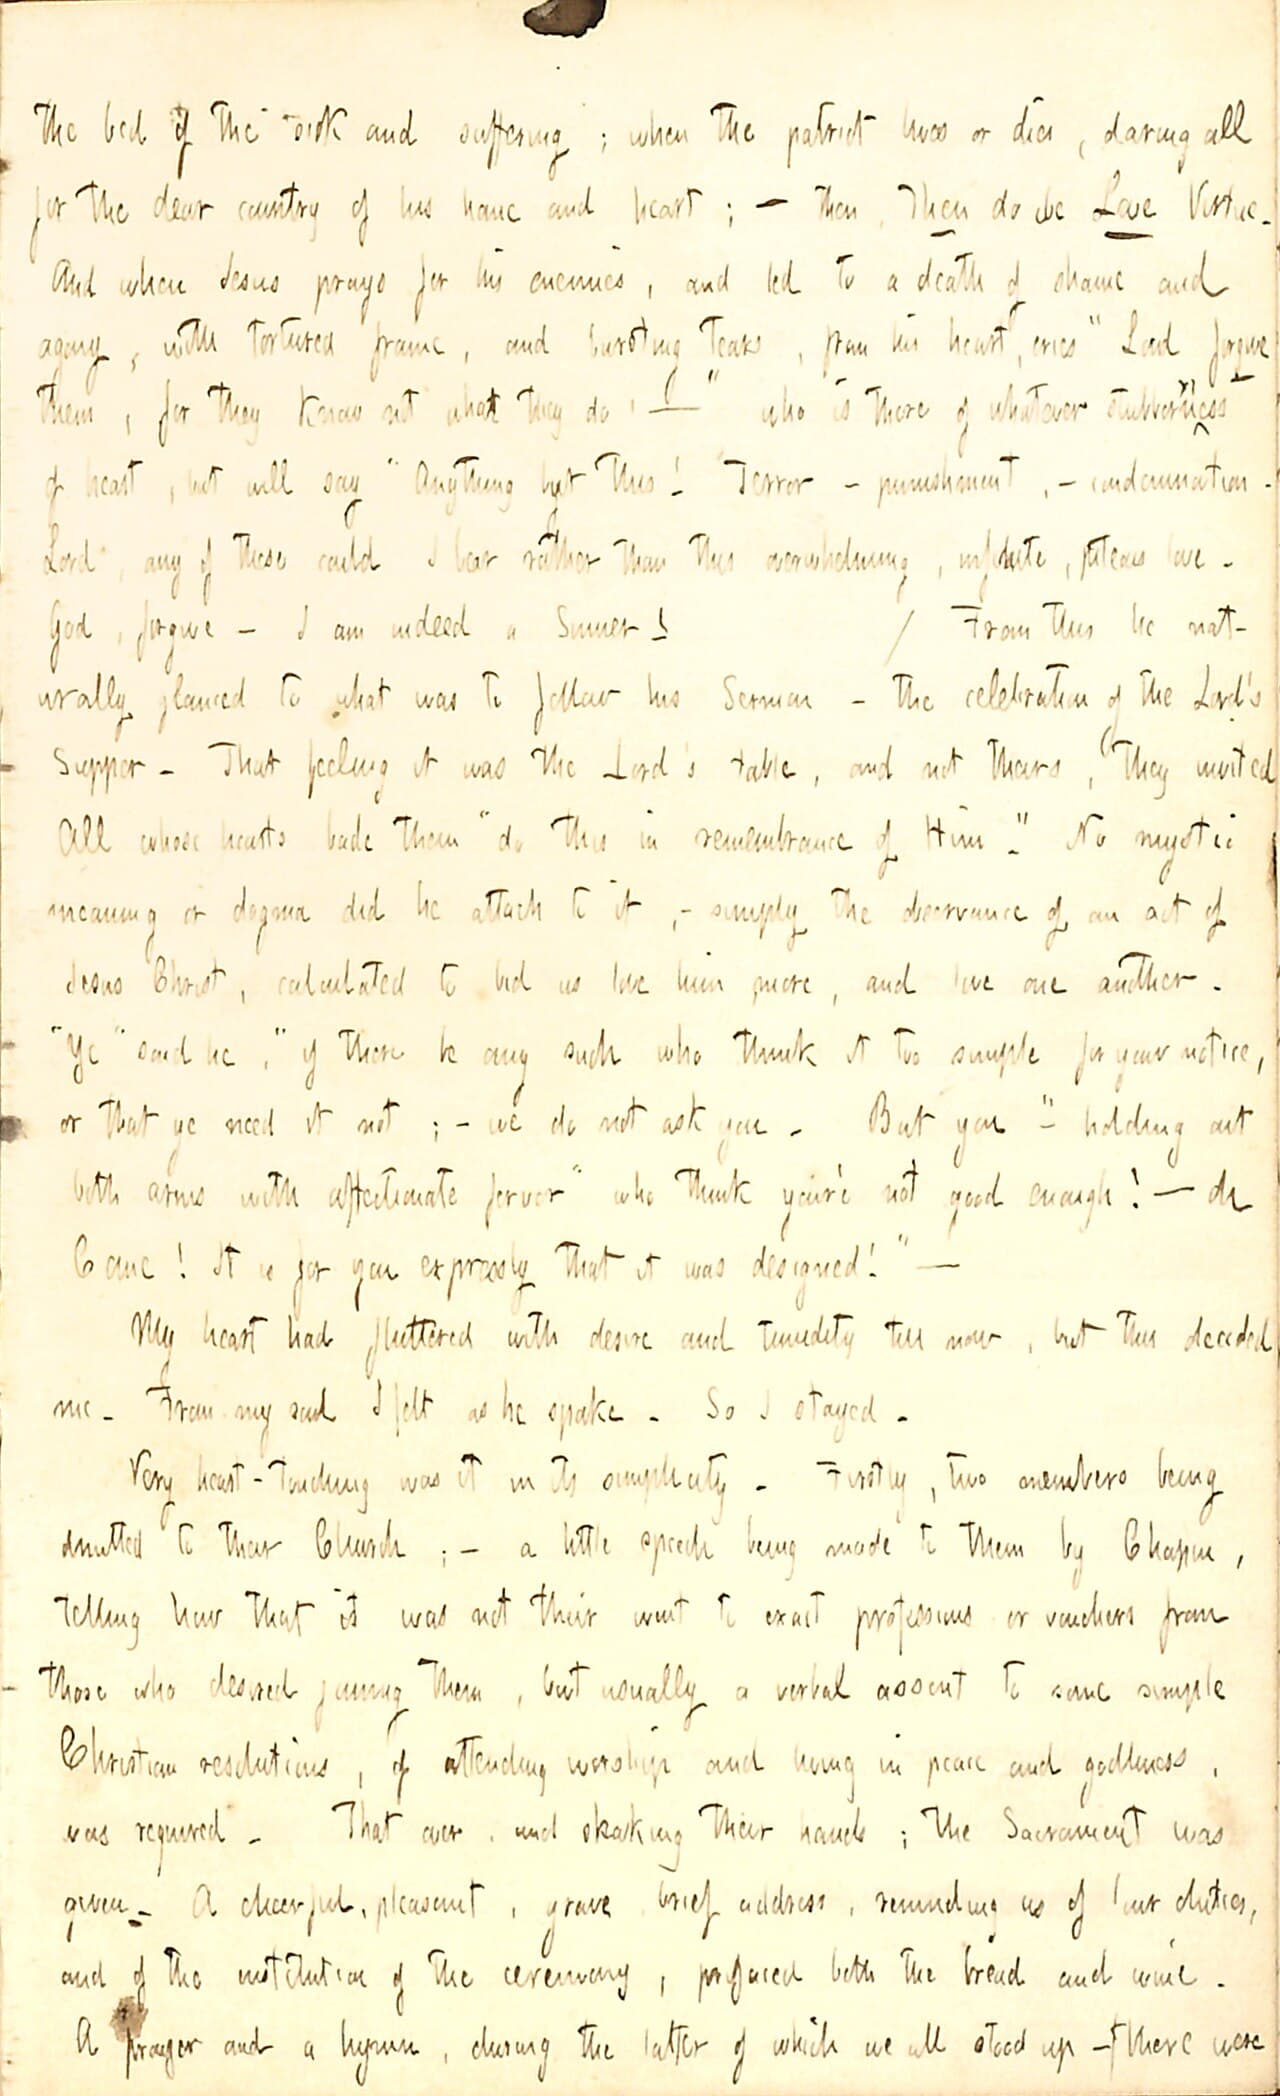 the bed of the sick and suffering ; when the patriot lives or dies , daring all
for the dear country of his home and heart ; — then , Then do we Love Virtue -
And when Jesus prays for his enemies , and led to a death of shame and
agony , with tortured frame , and bursting tears , from his heart , cries " Lord forgive
them , for they know not what they do , ! " who is there of whatever stubbornness
of heart , but will say " Anything but This ! Terror – punishment , – condemnation -
Lord , any of these could I bear rather than this overwhelming , infinite , piteous love -
God , forgive – I am indeed a Sinner ! / From this he nat-
urally glanced to what was to follow his Sermon – the celebration of the Lord's
Supper – That feeling it was the Lord's table , and not theirs , they invited
All whose hearts bade them " do this in remembrance of Him - " No mystic
meaning or dogma did he attach to it , – simply the observance of an act of
Jesus Christ , calculated to bid us love him more , and love one another -
" Ye " said he , " if there be any such who think it too simple for your notice ,
or that ye need it not ; – we do not ask you – But you " – holding out
both arms with affectionate fervor " who think you're not good enough ! — oh
Come ! It is for you expressly that it was designed ! " —
My heart had fluttered with desire and timidity till now , but this decided
me – From my soul I felt as he spake – So I stayed -
Very heart - touching was it in its simplicity – Firstly , two members being
admitted to their Church ; – a little speech being made to them by Chapin ,
telling how that it was not their wont to exact professions or vouchers from
those who desired joining them , but usually a verbal assent to some simple
Christian resolutions , of attending worship and living in peace and godliness ,
was required – That over , and shaking their hands ; the Sacrament was
given – A cheerful , pleasant , grave brief address , reminding us of our duties ,
and of the institution of the ceremony , prefaced both the bread and wine -
A prayer and a hymn , during the latter of which we all stood up – there were